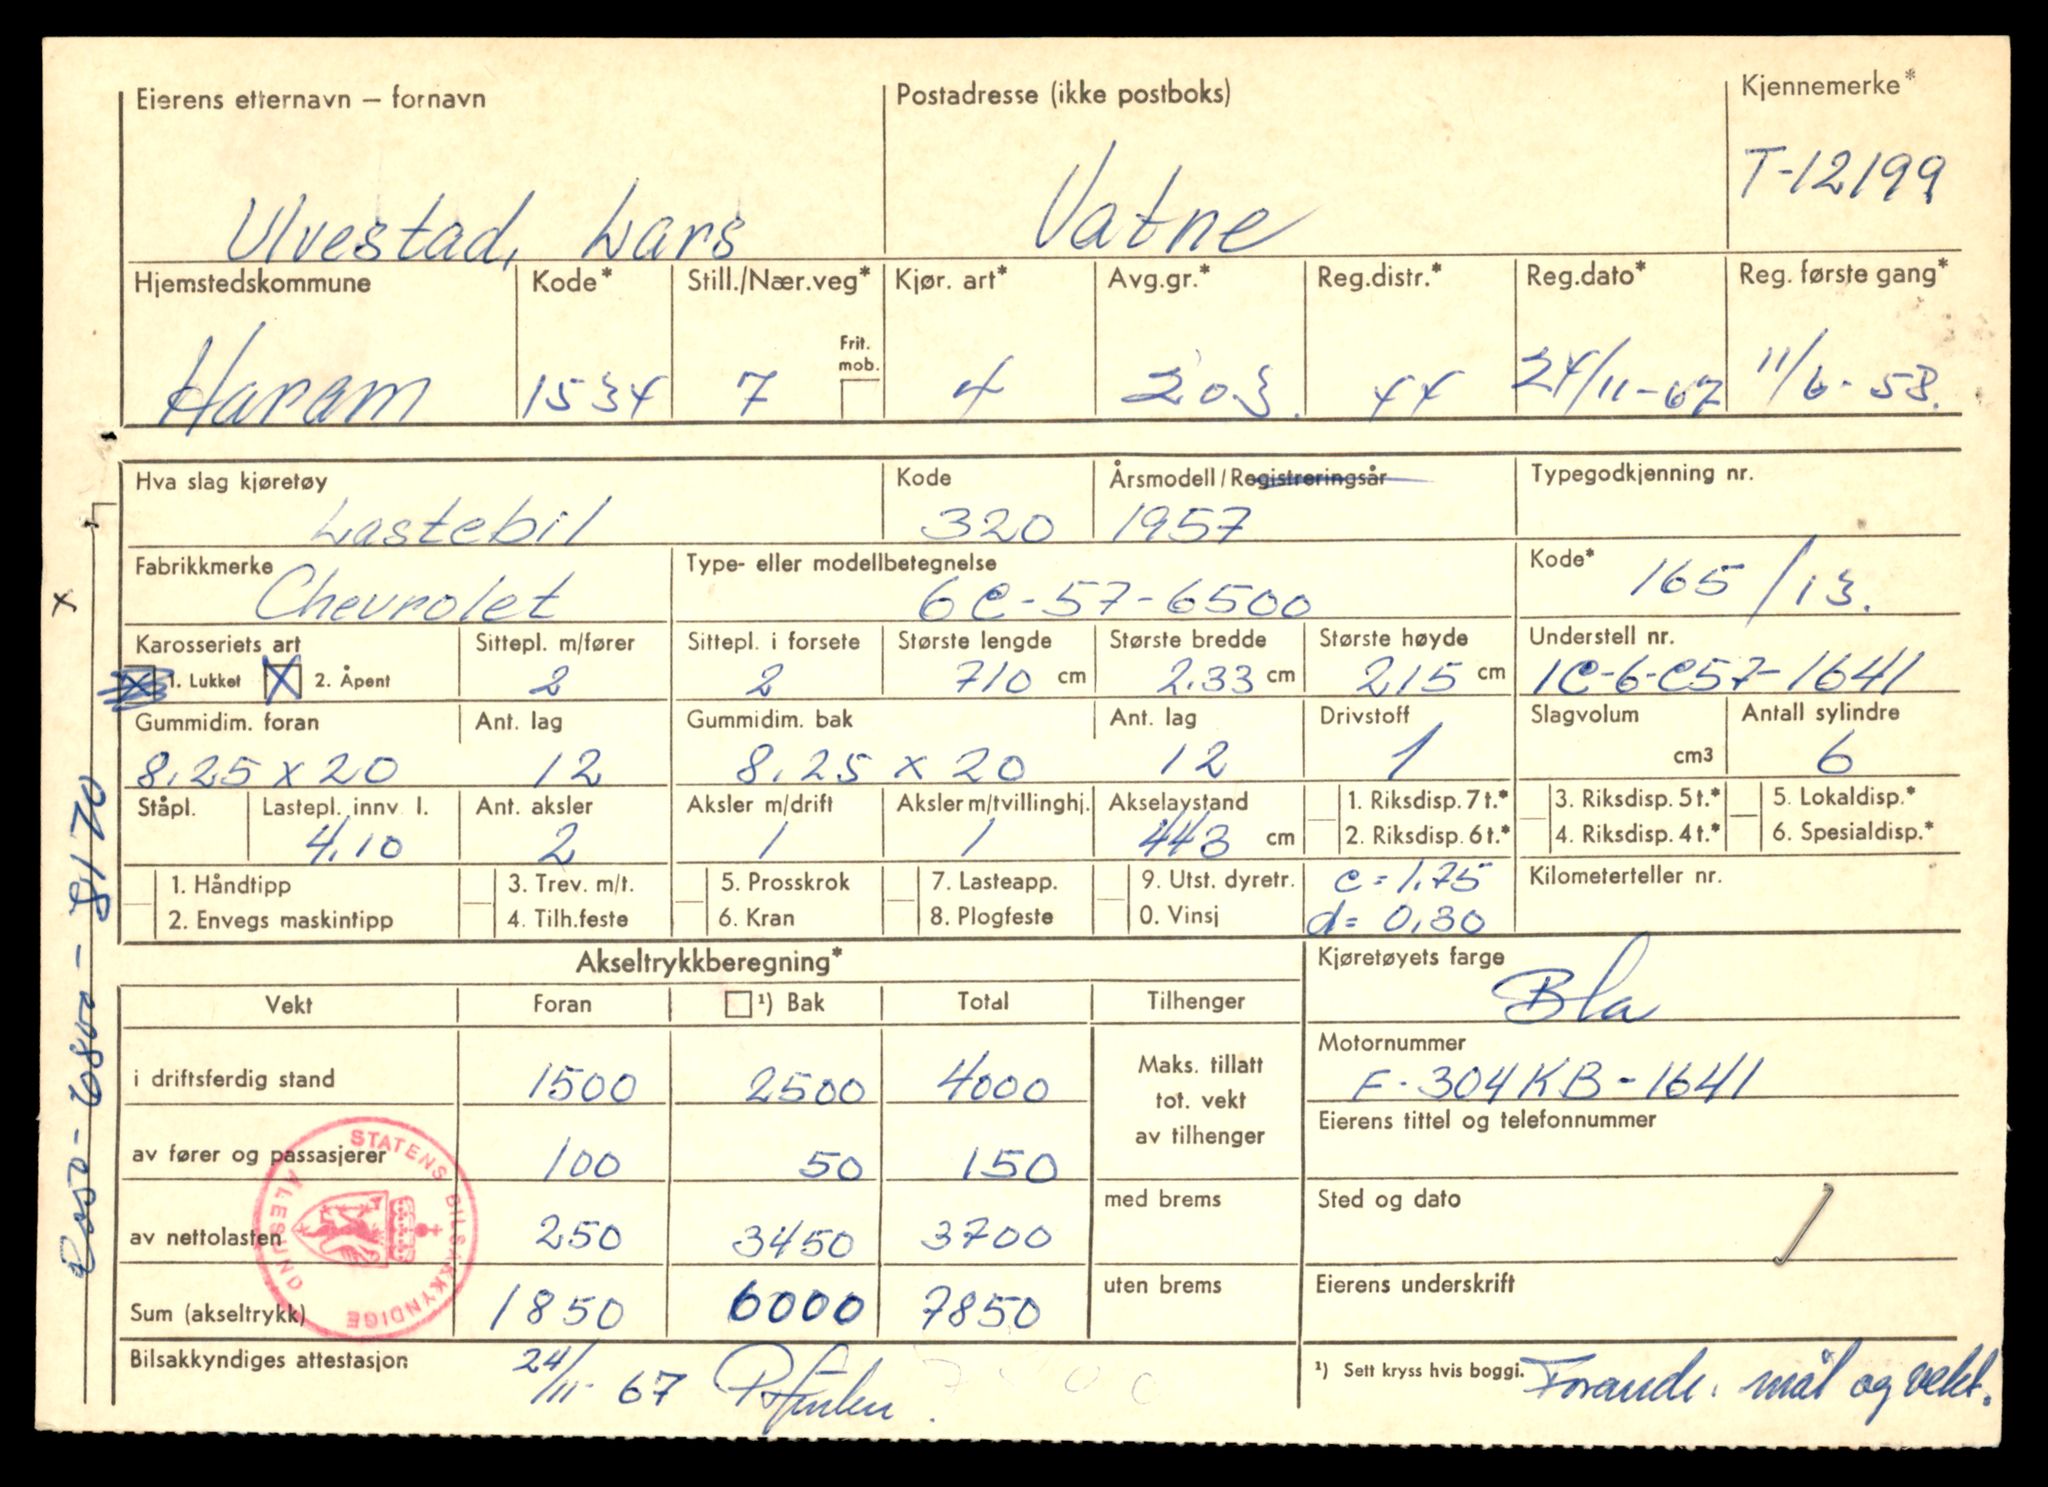 Eierens etternavn – fornavn
Postadresse (ikke postboks)
Kjennemerke*
Ulvestad, Lars
Vatne
T-12199
Hjemstedskommune
Kode*
Still./Nær.veg*
Kjør. art*
Avg.gr.*
Reg.distr.*
Reg.dato*
Reg. første gang*
Haram
1534
7
Frit. mob.
4
203.
44
24/11-67
11/6-58.
Hva slag kjøretøy
Kode
Årsmodell/Registreringsår
Typegodkjenning nr.
Lastebil
320
1957
Fabrikkmerke
Type- eller modellbetegnelse
Kode*
Chevrolet
6C-57-6500
165/13.
Karosseriets art
Sittepl. m/fører
Sittepl. i forsete
Største lengde
Største bredde
Største høyde
Understell nr.
X 1. Lukket X 2. Åpent
2
2
710 cm
2.33 cm
215 cm
1C-6-C57-1641
Gummidim. foran
Ant. lag
Gummidim. bak
Ant. lag
Drivstoff
Slagvolum
Antall sylindre
8.25 x 20
12
8.25 x 20
12
1
cm3
6
Ståpl.
Lastepl. innv. l.
Ant. aksler
Aksler m/drift
Aksler m/tvillinghj.
Akselavstand
1. Riksdisp. 7 t.*
3. Riksdisp. 5 t.*
5. Lokaldisp.*
4.10
2
1
1
443 cm
2. Riksdisp. 6 t.*
4. Riksdisp. 4 t.*
6. Spesialdisp.*
1. Håndtipp
3. Trev. m/t.
5. Prosskrok
7. Lasteapp.
9. Utst. dyretr.
c = 1.75
Kilometerteller nr.
2. Envegs maskintipp
4. Tilh.feste
6. Kran
8. Plogfeste
0. Vinsj
d = 0.30
Akseltrykkberegning*
Kjøretøyets farge
Vekt
Foran
¹) Bak
Total
Tilhenger
Bla
i driftsferdig stand
1500
2500
4000
Maks. tillatt
tot. vekt
av tilhenger
Motornummer
F-304KB-1641
Eierens tittel og telefonnummer
av fører og passasjerer
100
50
150
av nettolasten
250
3450
3700
med brems
Sted og dato
Sum (akseltrykk)
1850
6000
7850
uten brems
Eierens underskrift
Bilsakkyndiges attestasjon
24/11-67
¹) Sett kryss hvis boggi.
Forandr. mål og vekt.
STATENS BILSAKKYNDIGE
ÅLESUND
x
6800 - 8170